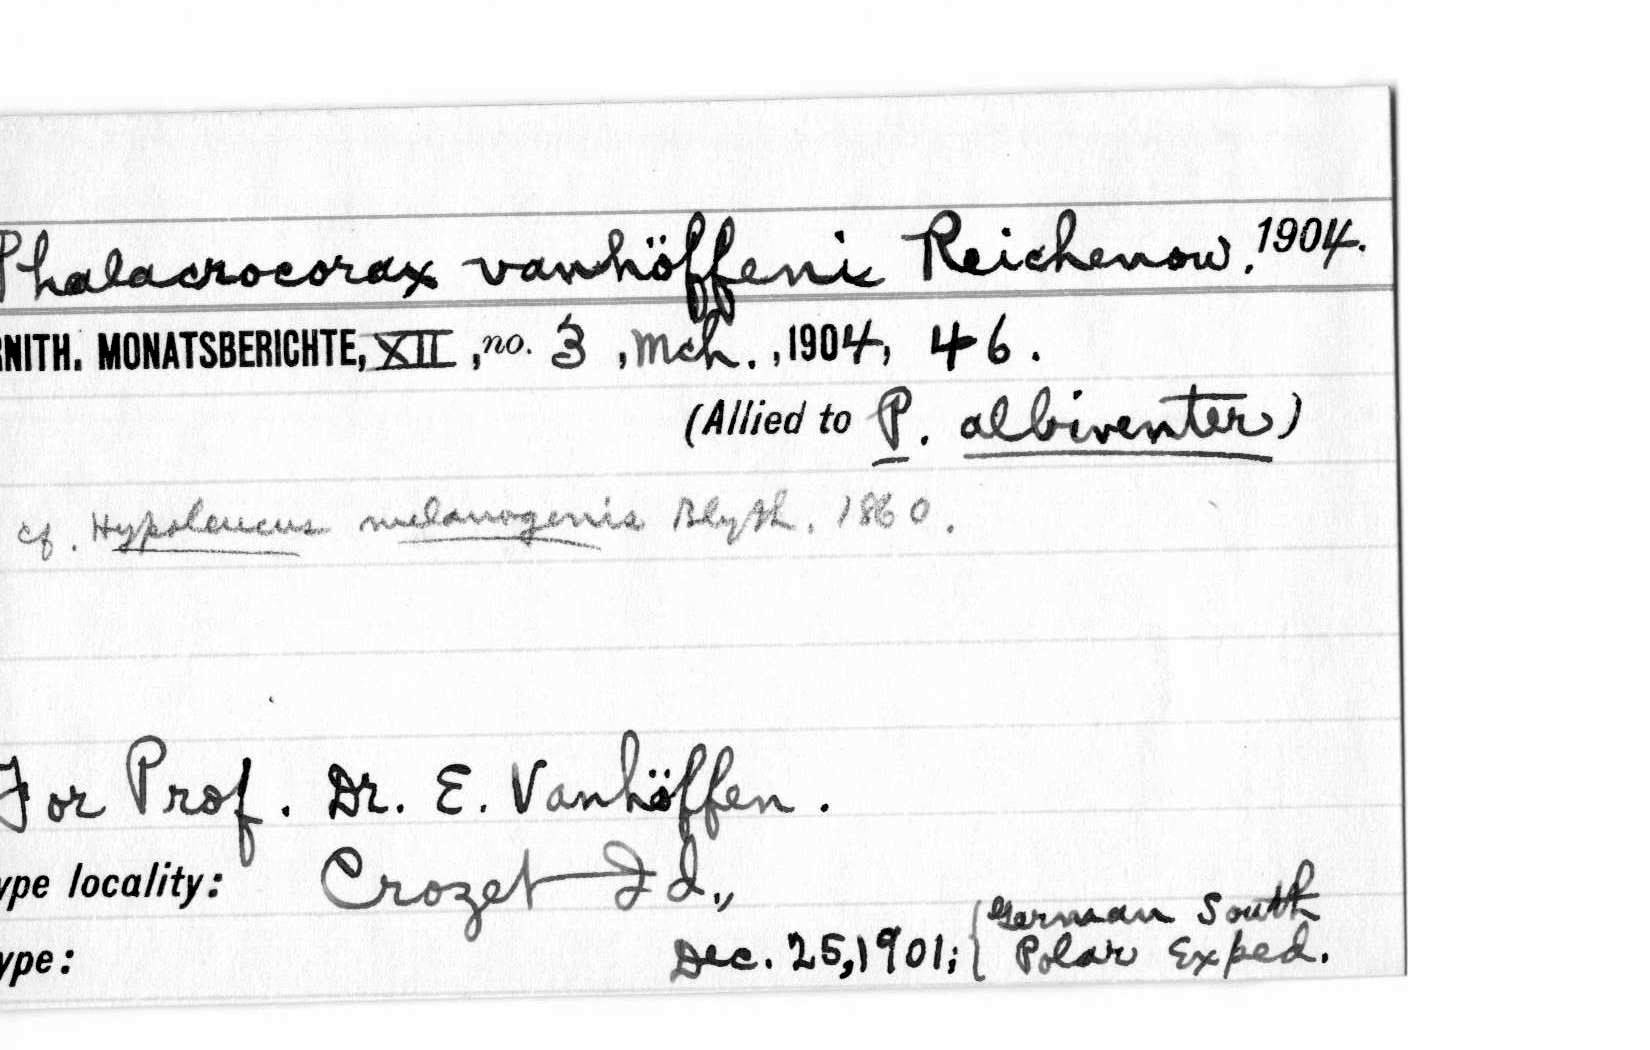 Phalacrocorax vanhöffeni Reichenow. 1904.
RNITH. MONATSBERICHTE, XII, no. 3, Mch., 1904, 46.
(Allied to P. albiventer)
cf. Hypoleucus melanogenis Blyth, 1860.
For Prof. Dr. E. Vanhöffen.
ype locality: Crozet Id.,
ype: Dec. 25, 1901; { German South
Polar Exped.